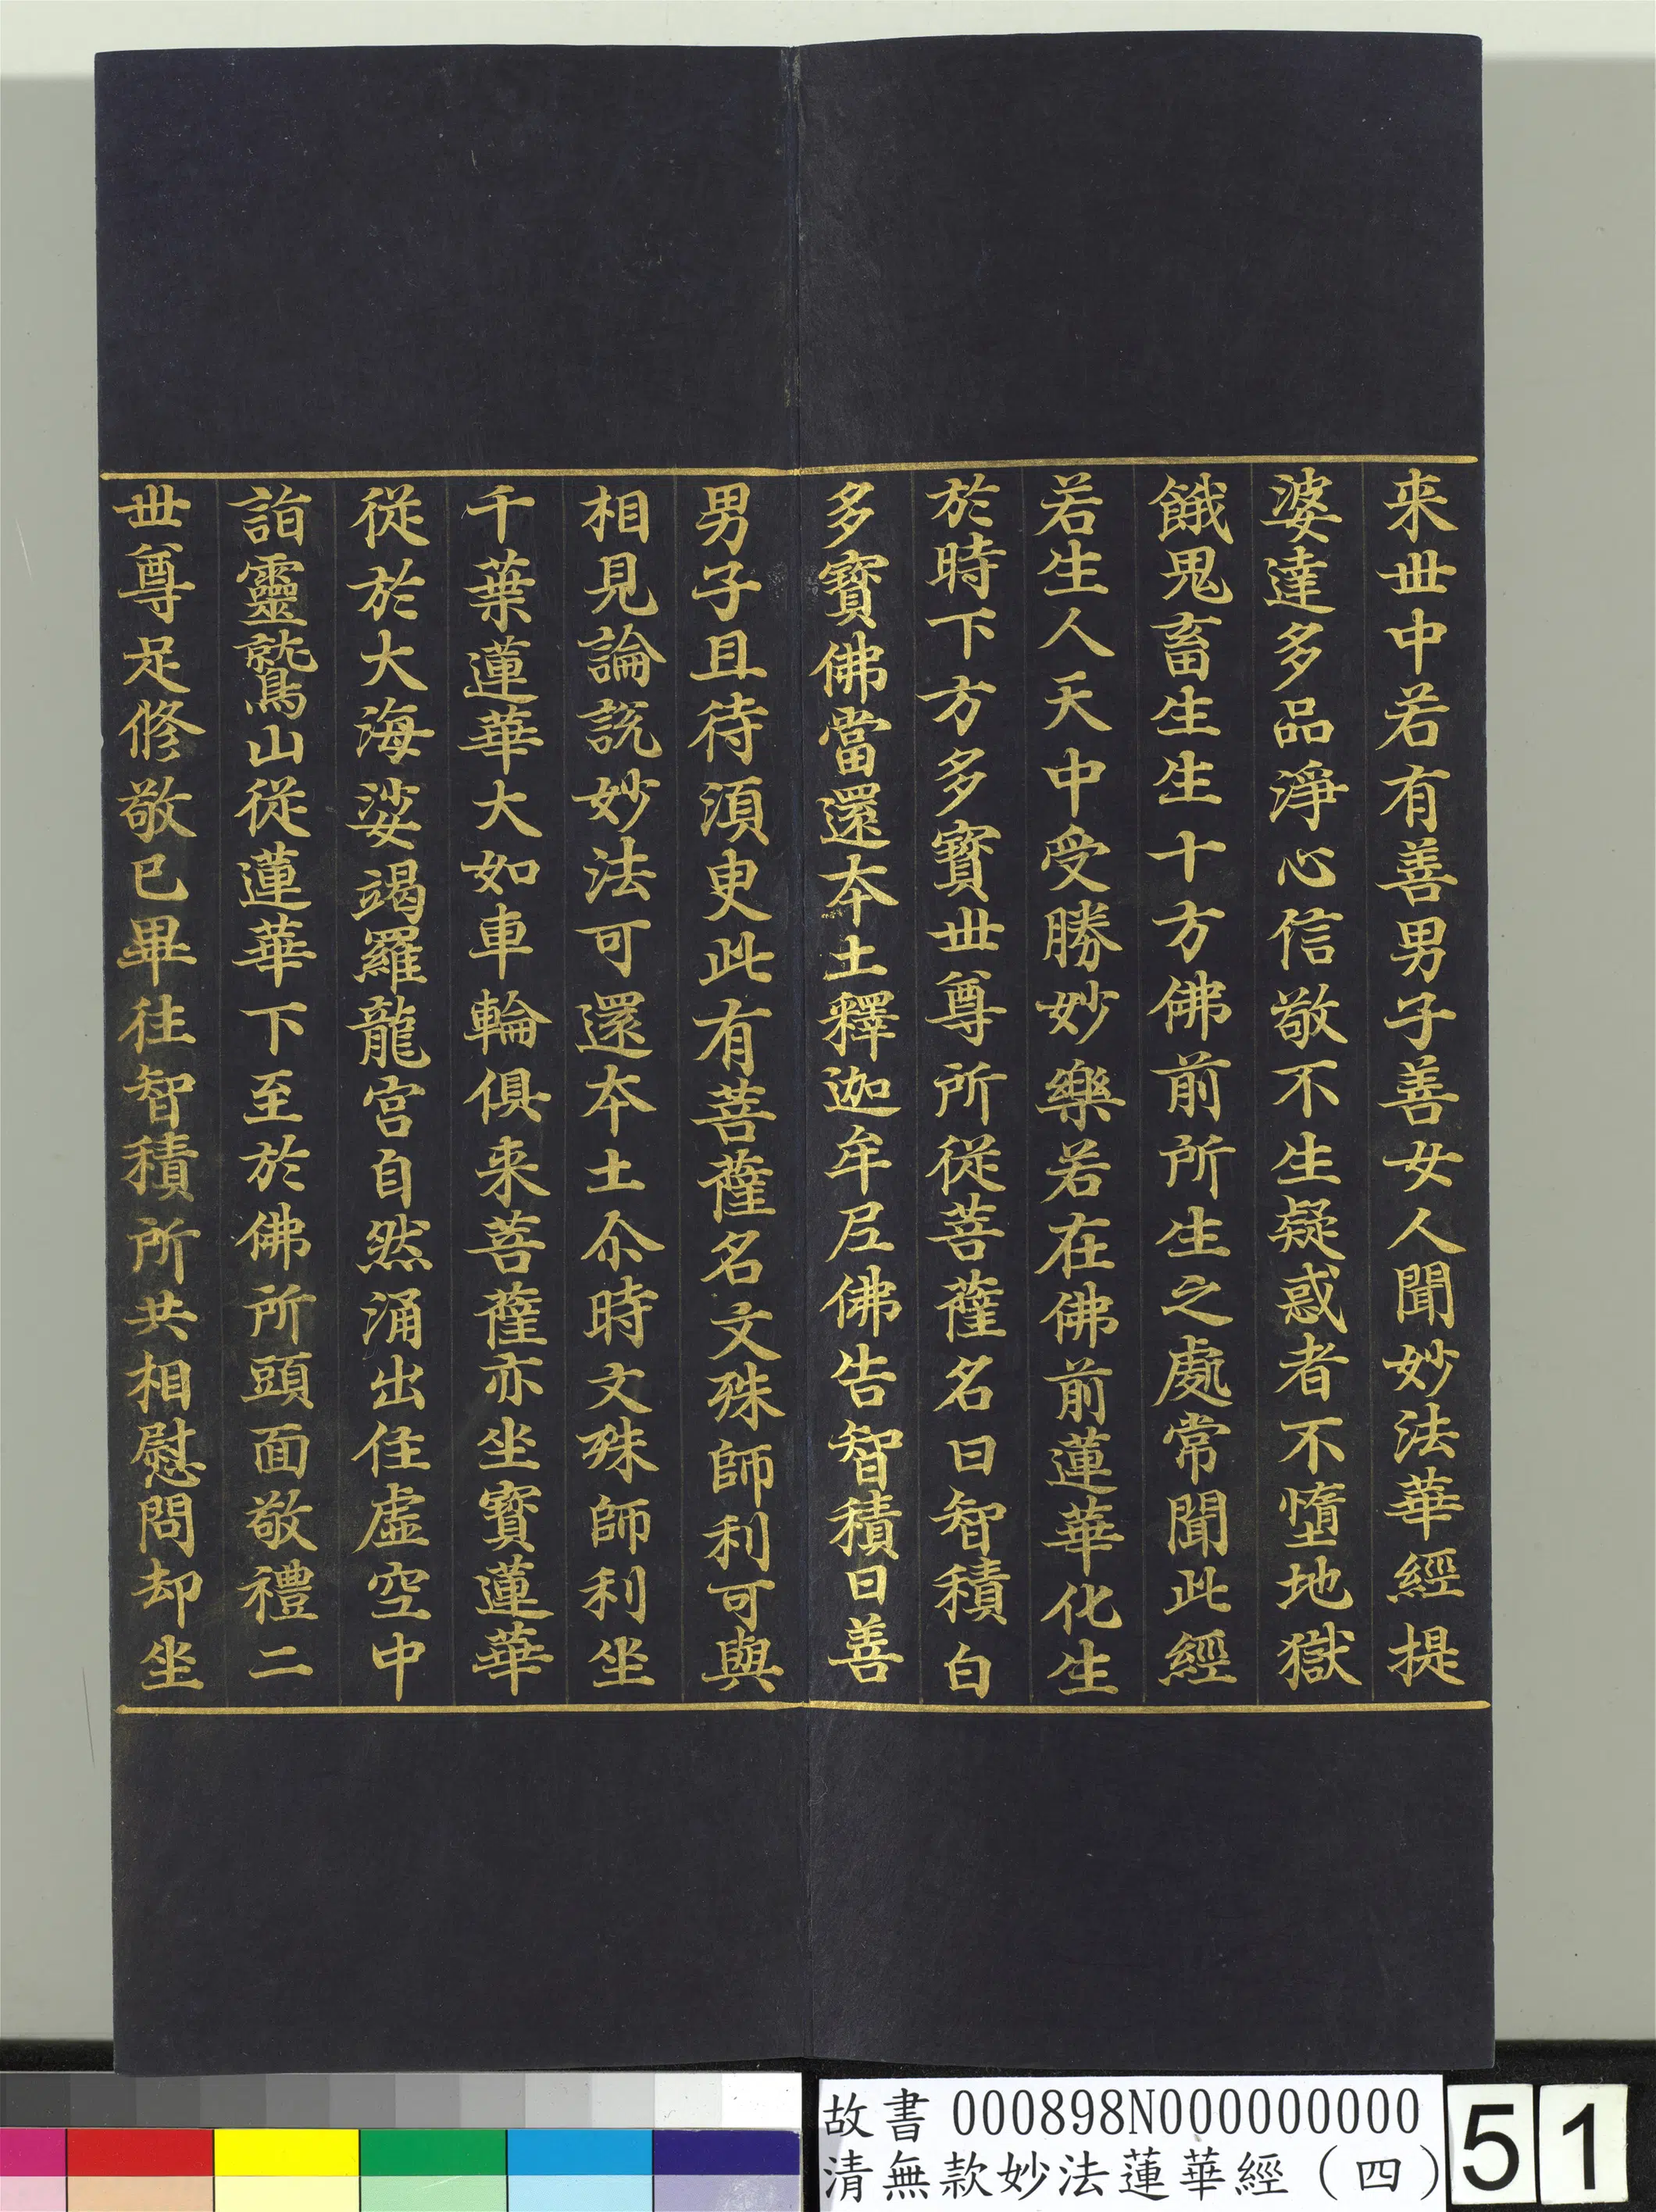 来丗中若有善男子善女人聞妙法華經提
婆達多品淨心信敬不生疑惑者不墮地獄
餓鬼畜生生十方佛前所生之處常聞此經
若生人天中受勝妙樂若在佛前蓮華化生
於時下方多寶丗尊所從菩薩名曰智積白
多寶佛當還夲土釋迦牟尼佛告智積曰善
男子且待須臾此有菩薩名文殊師利可與
相見論說妙法可還夲土尒時文殊師利坐
千葉蓮華大如車輪俱来菩薩亦坐寶蓮華
從於大海娑竭羅龍宮自然涌出住虛空中
詣靈鷲山從蓮華下至於佛所頭面敬禮二
丗尊足修敬已畢往智積所共相慰問却坐
故書 000898N000000000
清無款妙法蓮華經（四）
51